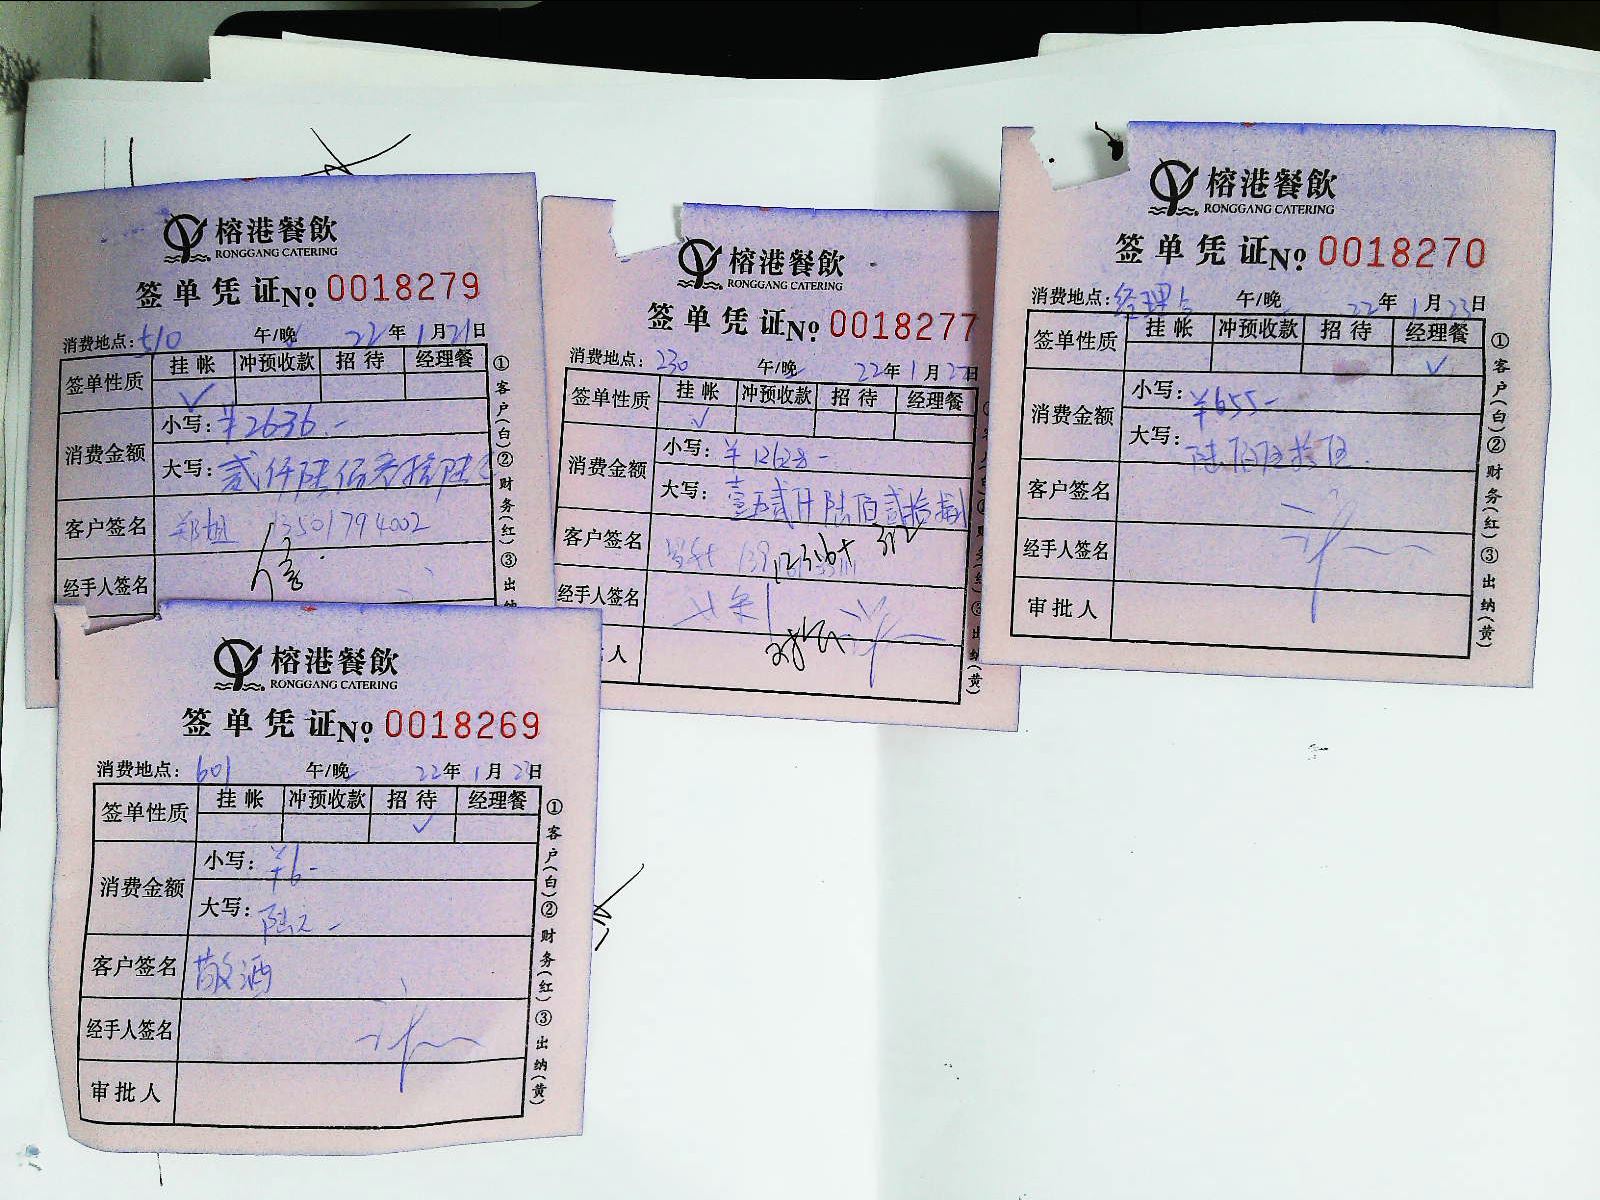 榕港餐飲
RONGGANG CATERING
签单凭证No. 0018279
消费地点：510 午/晚 22年1月21日
签单性质 挂帐 冲预收款 招待 经理餐
✓
消费金额 小写：¥2636.-
大写：贰仟陆佰叁拾陆
客户签名 郑姐 13501794002
经手人签名
①客户(白)②财务(红)③出纳
榕港餐飲
RONGGANG CATERING
签单凭证No. 0018277
消费地点：230 午/晚 22年1月22日
签单性质 挂帐 冲预收款 招待 经理餐
✓
消费金额 小写：¥12628-
大写：仟陆佰贰拾捌
客户签名
经手人签名
人
榕港餐飲
RONGGANG CATERING
签单凭证No. 0018270
消费地点：经理 午/晚 22年1月23日
签单性质 挂帐 冲预收款 招待 经理餐
✓
消费金额 小写：¥655-
大写：陆佰伍拾伍
客户签名
经手人签名
审批人
①客户(白)②财务(红)③出纳(黄)
榕港餐飲
RONGGANG CATERING
签单凭证No. 0018269
消费地点：601 午/晚 22年1月23日
签单性质 挂帐 冲预收款 招待 经理餐
✓
消费金额 小写：¥6-
大写：陆元-
客户签名 敬酒
经手人签名
审批人
①客户(白)②财务(红)③出纳(黄)